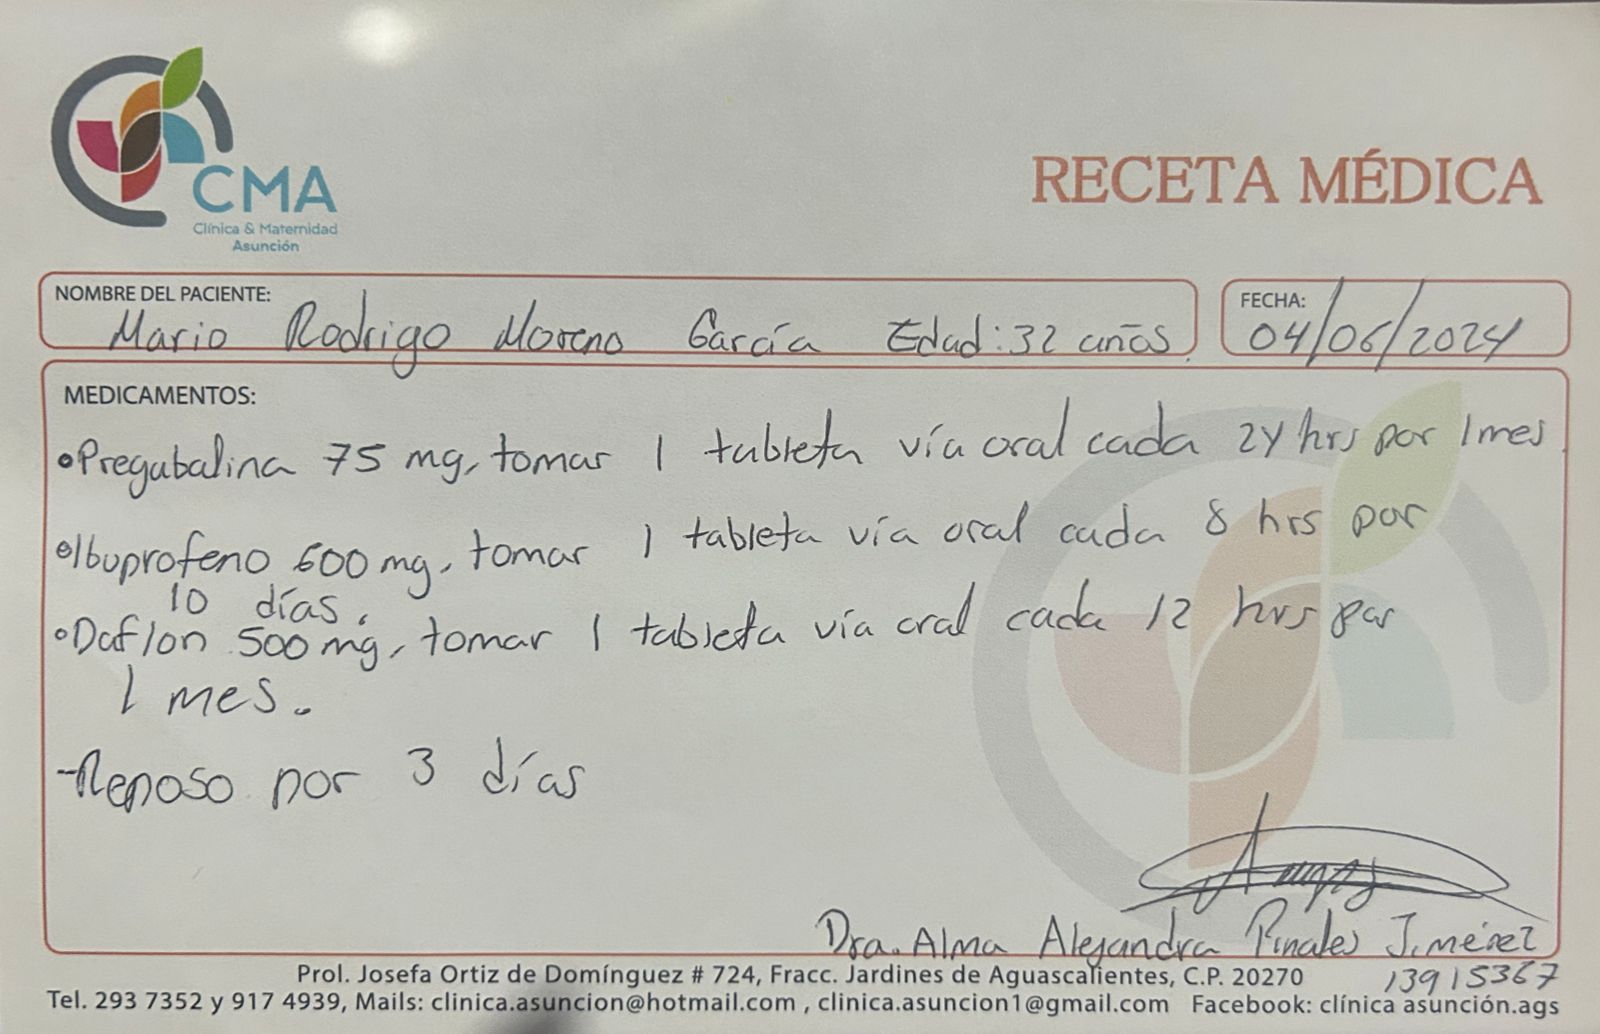 CMA
Clínica & Maternidad
Asunción
RECETA MÉDICA
NOMBRE DEL PACIENTE: Mario Rodrigo Moreno García Edad: 32 años.
FECHA: 04/06/2024
MEDICAMENTOS:
•Pregabalina 75 mg, tomar 1 tableta vía oral cada 24 hrs por 1 mes
•Ibuprofeno 600 mg, tomar 1 tableta vía oral cada 8 hrs por
10 días.
•Daflon 500 mg, tomar 1 tableta vía oral cada 12 hrs por
1 mes.
-Reposo por 3 días
Dra. Alma Alejandra Pinales Jiménez
13915367
Prol. Josefa Ortiz de Domínguez # 724, Fracc. Jardines de Aguascalientes, C.P. 20270
Tel. 293 7352 y 917 4939, Mails: clinica.asuncion@hotmail.com , clinica.asuncion1@gmail.com Facebook: clínica asunción.ags